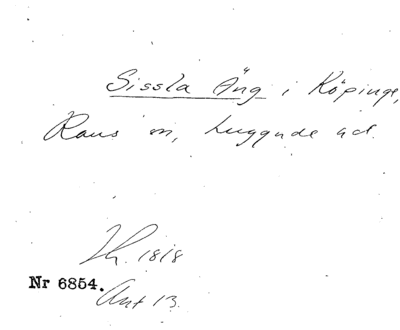 Sissla Äng i Köpinge,
Raus sn, Luggude hd.
Th. 1818
Nr 6854.
Akt 13.